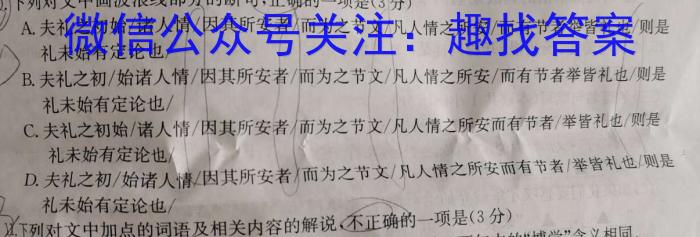 下列对文中画波浪线部分的断句,正确的一项是(3分)
A.夫礼之初/始诸人情/因其所安者/而为之节文/凡人情之所安/而有节者/举皆礼也/则是
礼未始有定论也/
微信公众号关注：趣找答案
B.夫礼之初/始诸人情/因其所安者/而为之节文/凡人情之所安/而有节者举皆礼也/则是
礼未始有定论也/
C.夫礼之初始/诸人情/因其所安者/而为之节文/凡人情之所安而有节者/举皆礼也/则是
礼未始有定论也/
D.夫礼之初/始诸人情/因其所安者/而为之节文/凡人情之所安而有节者/举皆礼也/则是
礼未始有定论也/
下列对文中加点的词语及相关内容的解说,不正确的一项是(3分)
的“博学”含义相同,